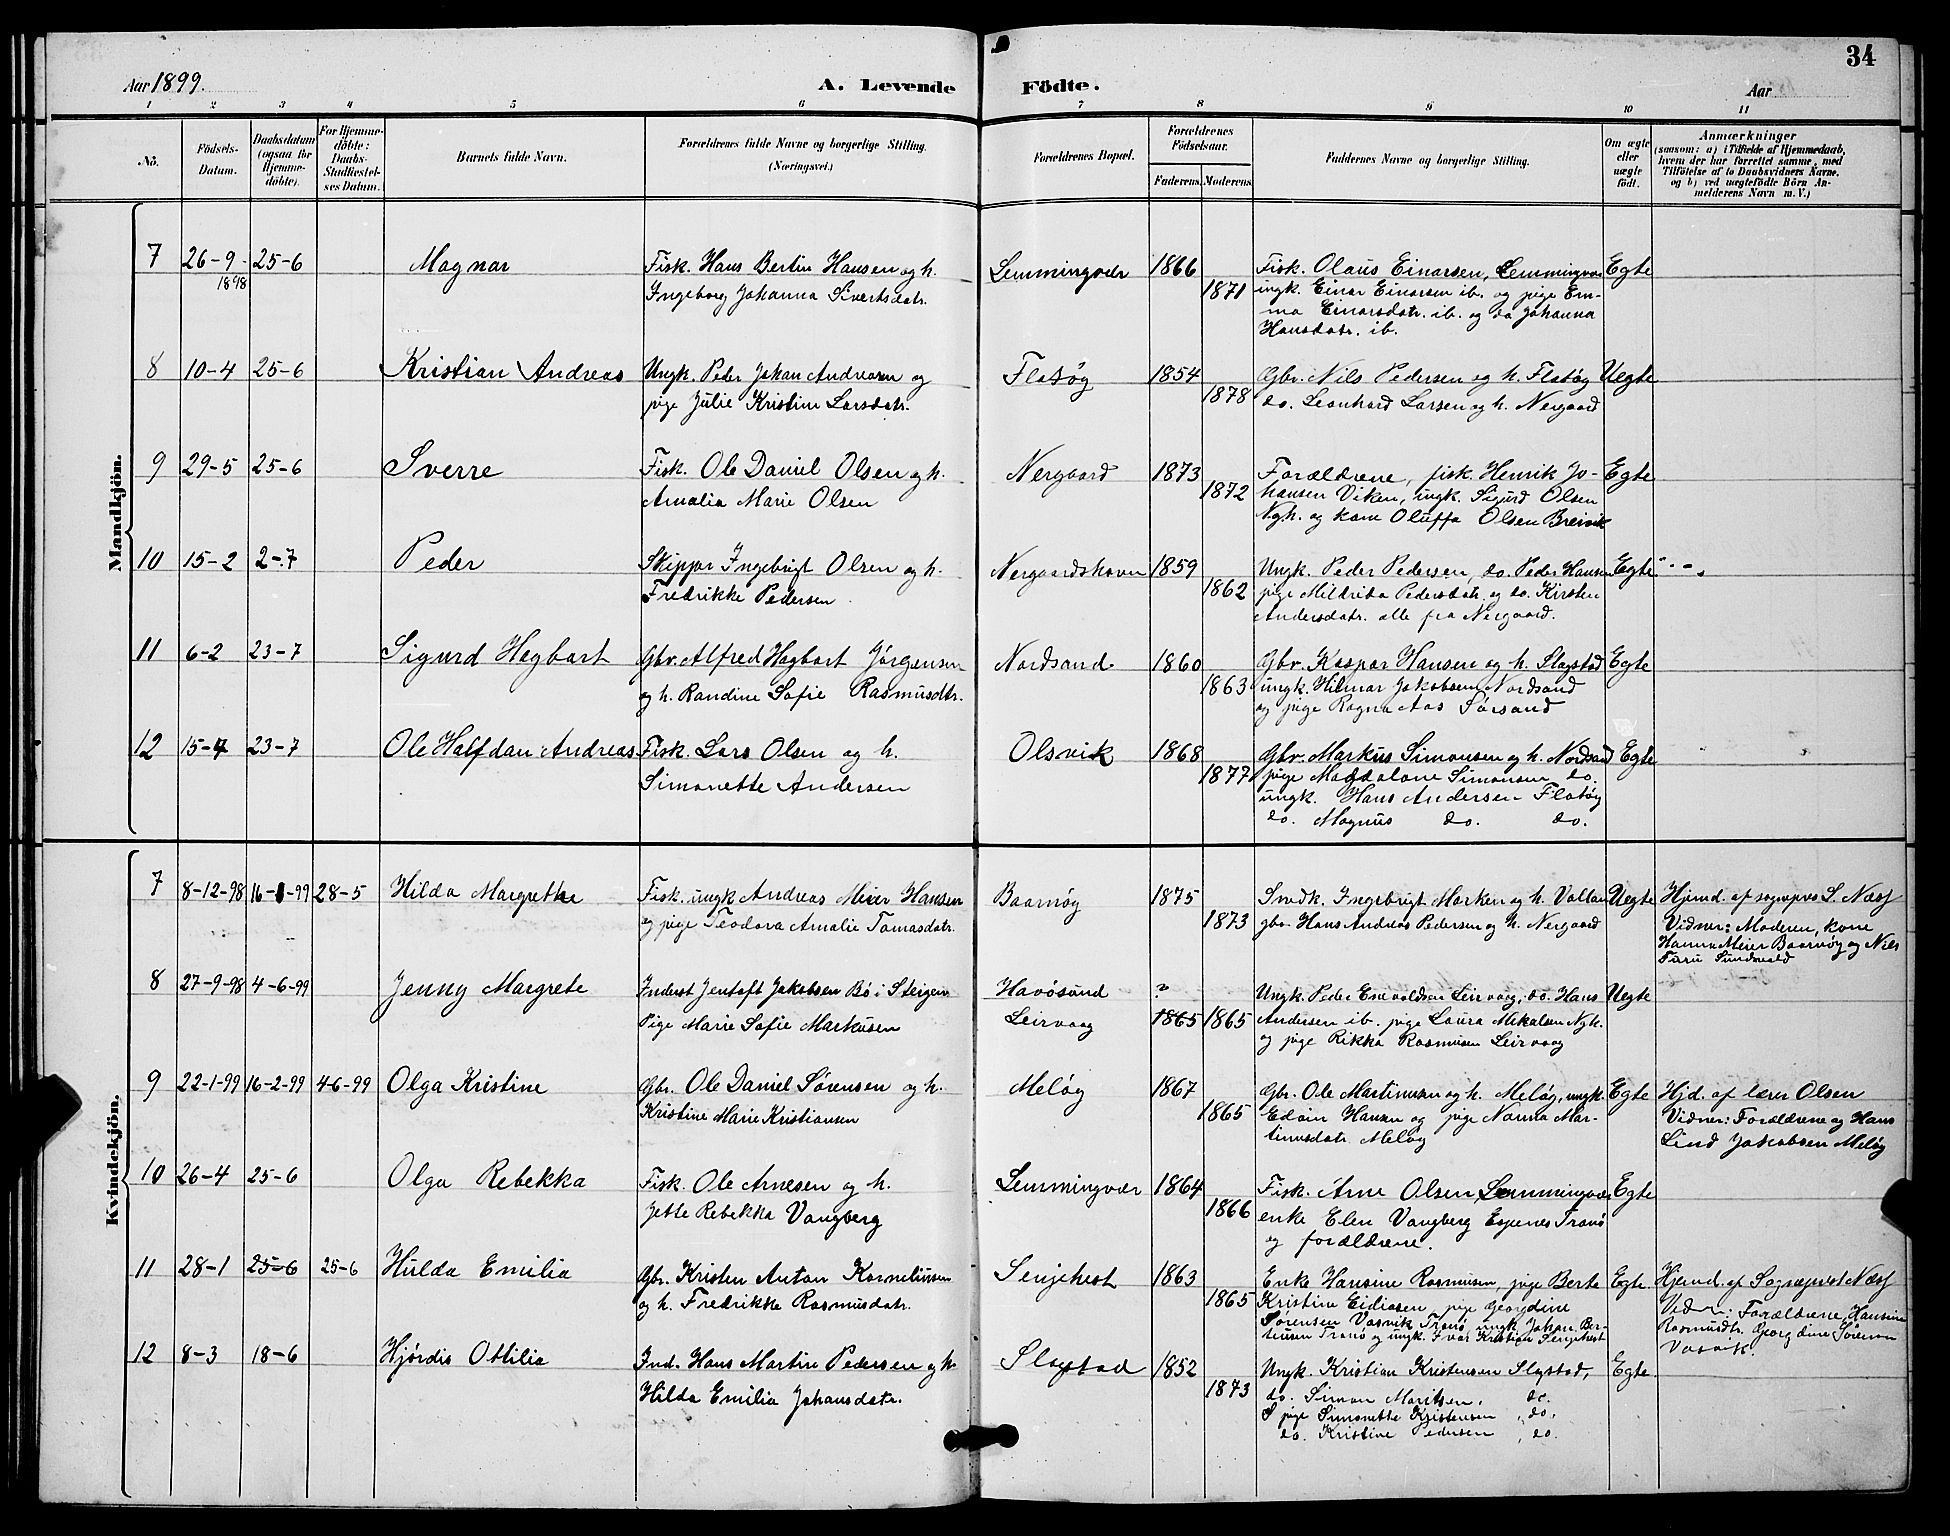 34
Aar 1899.
A. Levende Födte.
Aar
1 2 3 4 5 6 7 8 9 10 11
No.
Födsels-Datum.
Daabsdatum (ogsaa for Hjemmedöbte).
For Hjemmedöbte: Daabs-Stadfæstelses Datum.
Barnets fulde Navn.
Forældrenes fulde Navne og borgerlige Stilling. (Næringsvei.)
Forældrenes Bopæl.
Forældrenes Födselsaar.
Faderens. Moderens.
Faddernes Navne og borgerlige Stilling.
Om ægte eller uægte födt.
Anmærkninger
(saasom: a) i Tilfælde af Hjemmedaab,
hvem der har forrettet samme, med
Tilföielse af to Daabsvidners Navne,
og b) ved uægtefödte Börn Anmelderens Navn m. V.)
Mandkjön.
7 26-9- 1898 25-6 Magnar
Fisk. Hans Bertin Hansen og h.
Ingeborg Johanna Sivertsdatr.
Lemmingvær 1866 1871
Fisk. Olaus Einarsen, Lemmingvær
ungk. Einar Einarsen ib. og pige Em-
ma Einarsdatr. ib. og do Johanna
Hansdatr. ib.
Egte
8 10-4 25-6 Kristian Andreas
Ungk. Peder Johan Andreasen og
pige Julie Kristine Larsdatr.
Flatøg 1854 1878
Gbr. Nils Pedersen og h. Flatøg
do. Leonhard Larsen og h. Nergaard
Uegte
9 29-5 25-6 Sverre
Fisk. Ole Daniel Olsen og h.
Amalia Marie Olsen
Nergaard 1873 1872
Forældrene, fisk. Henrik Jo-
hansen Viken, ungk. Sigurd Olsen
Ngh. og kone Oluffa Olsen Breivik
Egte
10 15-2 2-7 Peder
Skippar Ingebrigt Olsen og h.
Fredrikke Pedersen
Nergaardshavn 1859 1862
Ungk. Peder Pedersen, do. Peder Hansen
pige Mildrida Pedersdatr. og do. Kirsten
Andersdatr. alle fra Nergaard.
Egte
11 6-2 23-7 Sigurd Hagbart
Gbr. Alfred Hagbart Jørgensen
og h. Randine Sofie Rasmusdtr.
Nordsand 1860 1863
Gbr. Kaspar Hansen og h. Slagstad
ungk. Hilmar Jakobsen Nordsand
og pige Ragna Aas Sørsand
Egte
12 15-4 23-7 Ole Halfdan Andreas
Fisk. Lars Olsen og h.
Simonette Andersen
Olsvik 1868 1877
Gbr. Markus Simonsen og h. Nordsand
pige Magdalone Simonsen do.
ungk. Hans Andersen Flatøg
do. Magnus do. do.
Egte
Kvindekjön.
7 8-12-98 16-1-99 28-5 Hilda Margrethe
Fisk. ungk Andreas Meier Hansen
og pige Teodora Amalie Tomasdatr.
Baarnøg 1875 1873
Smdk. Ingebrigt Marken og h. Vollan
gbr Hans Andreas Pedersen og h. Nergaard
Uegte
Hjemd. af sognepres S. Næss
Vidner: Moderen, kone
Hanna Meier Baarnøg og Nils
8 27-9-98 4-6-99 Jenny Margrete
Inderst Jentoft Jakobsen Bø i Steigen
Pige Marie Sofie Markusen
Havøsund
Leirvaag
? 1865 1865
Ungk. Peder Enevoldsen Leirvaag, do. Hans
Andersen ib. pige Laura Mikalsen Ngh.
og pige Rikka Rasmusen Leirvaag
Uegte
9 22-1-99 16-2-99 4-6-99 Olga Kristine
Gbr. Ole Daniel Sørensen og h.
Kristine Marie Kristiansen
Meløg 1867 1865
Gbr. Ole Martinusen og h. Meløg, ungk.
Edvin Hansen og pige Nanna Mar-
tinusdatr Meløg
Egte
Hjd. af lærer Olsen
Vidner: Forældrene og Hans
Lind Jakobsen Meløg
10 26-4 25-6 Olga Rebekka
Fisk. Ole Arnesen og h.
Jette Rebekka Vangberg
Lemmingvær 1864 1866
Fisk. Arne Olsen, Lemmingvær
enke Elen Vangberg Espenes Tranø
og forældrene.
Egte
11 28-1 25-6 25-6 Hulda Emilia
Gbr. Kristen Anton Korneliusen
og h. Fredrikke Rasmusdatr.
Senjehest 1863 1865
Enke Hansine Rasmusen, pige Berta
Kristine Eidissen pige Georgdine
Sørensen Vasvik Tranø, ungk. Johan Ber-
tinsen Tranø og ungk. Ivar Kristian Senjehest
Egte.
Hjemd. af Sognepræst Næss
Vidner: Forældrene, Hansine
Rasmusdtr. Georgdine Sörensen
Vasvik.
12 8-3 18-6 Hjørdis Ottilia
Ind. Hans Martin Pedersen og h.
Hilda Emilia Johansdatr.
Slagstad 1852 1873
Ungk. Kristian Kristensen Slagstad,
do. Simon Maritsen, do.
pige Simonette Kristensen, do.
do. Kristine Pedersen, do.
Egte